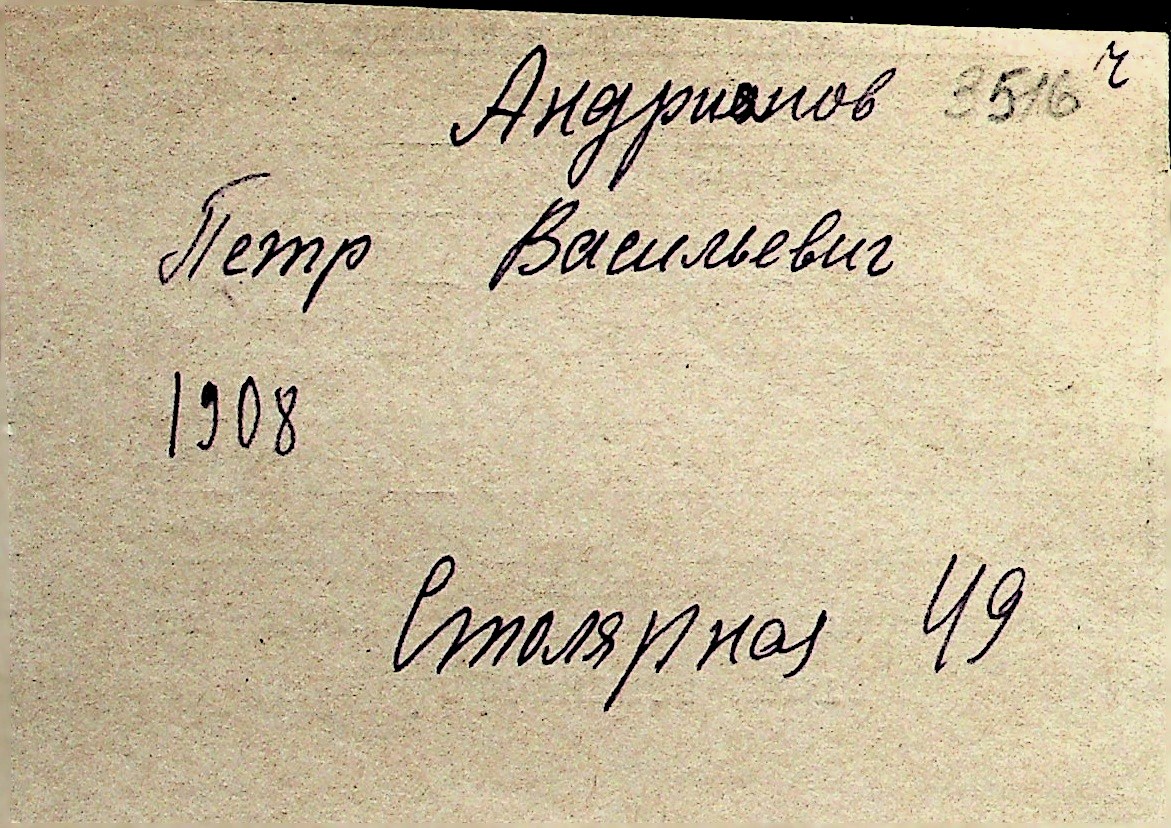 Андрианов 3516 ч
Петр Васильевич
1908
Столярная 49